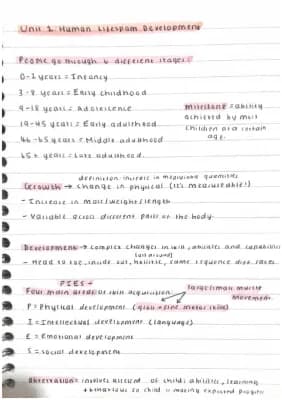 Unit 1 Human Lifespan Development
People go through 6 different stages:
0-2 years = Infancy
3-8 years = Early childhood
9-18 years = Adolescence
19-45 years = Early adulthood
46-65 years = Middle adulthood
65+ years = Late adulthood.
Milestone = ability
achieved by most
children at a certain
age.
definition: increase in measurable quantities
Growth → change in physical (it's measurable!)
- Increase in mass/weight/length
- Variable across different parts of the body.
Development → complex changes in skill, abilities and capabilities
- Head to toe, inside out, holistic, same sequence diff. rates.
(all around)
PIES -
Four main areas of skill acquisition:
large/small muscle
movement.
P = Physical development (gross + fine motor skills)
I = Intellectual development (language)
E = Emotional development
S = Social development
Observation = involves record of child's abilities, learning
+ behaviour so child is making expected progress